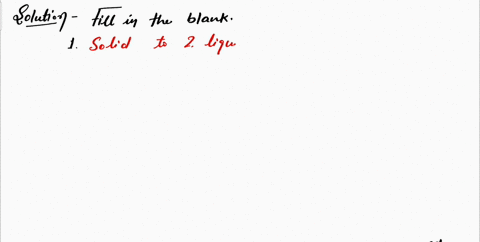 Solution- Fill in the blank.
1. Solid to 2. liqu